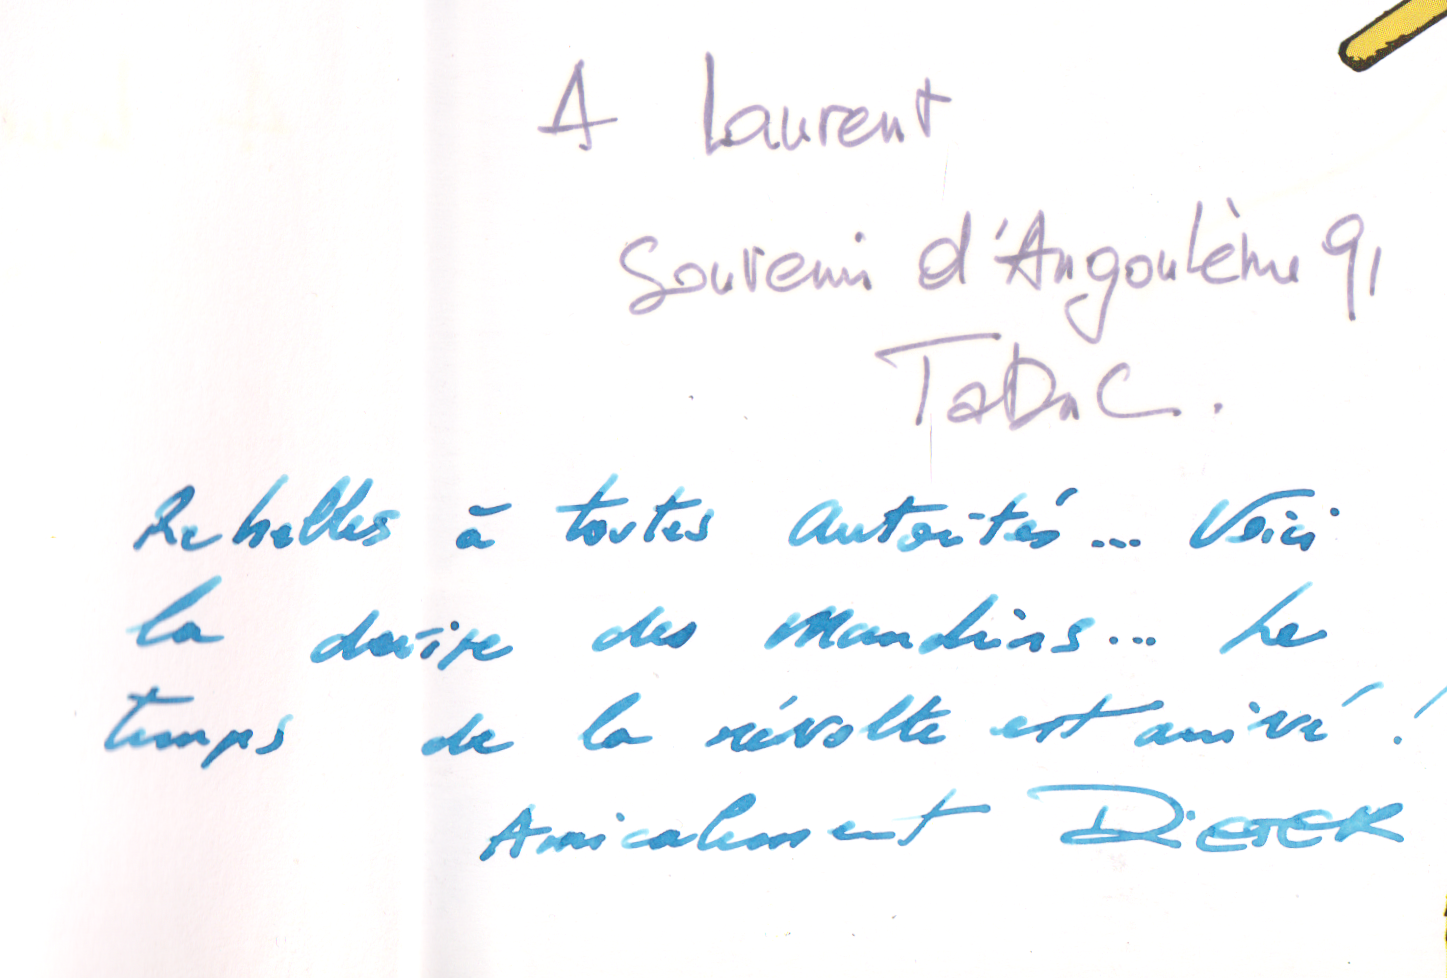 A Laurent
Souvenir d'Angoulème 91
TaDuC.
Rebelles à toutes Autorités... Voici
la devise des Mandins... Le
temps de la révolte est arrivé !
Amicalement DIETER